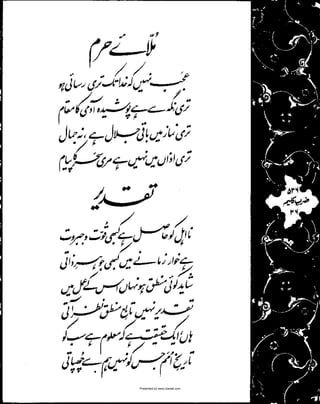 مُلّائے حرم
عجب نہیں کہ خدا تک تری رسائی ہو
تری نگہ سے ہے پوشیدہ آدمی کا مقام
تری نماز میں باقی جلال ہے، نہ جمال
تری اذاں میں نہیں ہے مری سحر کا پیام
تقدیر
نااہل کو حاصل ہے کبھی قوت و جبروت
ہے خوار زمانے میں کبھی جوہرِ ذاتی
شاید کوئی منطق ہو نہاں اس کے عمل میں
تقدیر نہیں تابعِ منطق نظر آتی
ہاں، ایک حقیقت ہے کہ معلوم ہے سب کو
تاریخِ اُمم جس کو نہیں ہم سے چھپاتی
۵۳۹
ضربِ کلیم
۳۹
Presented by www.ziaraat.com